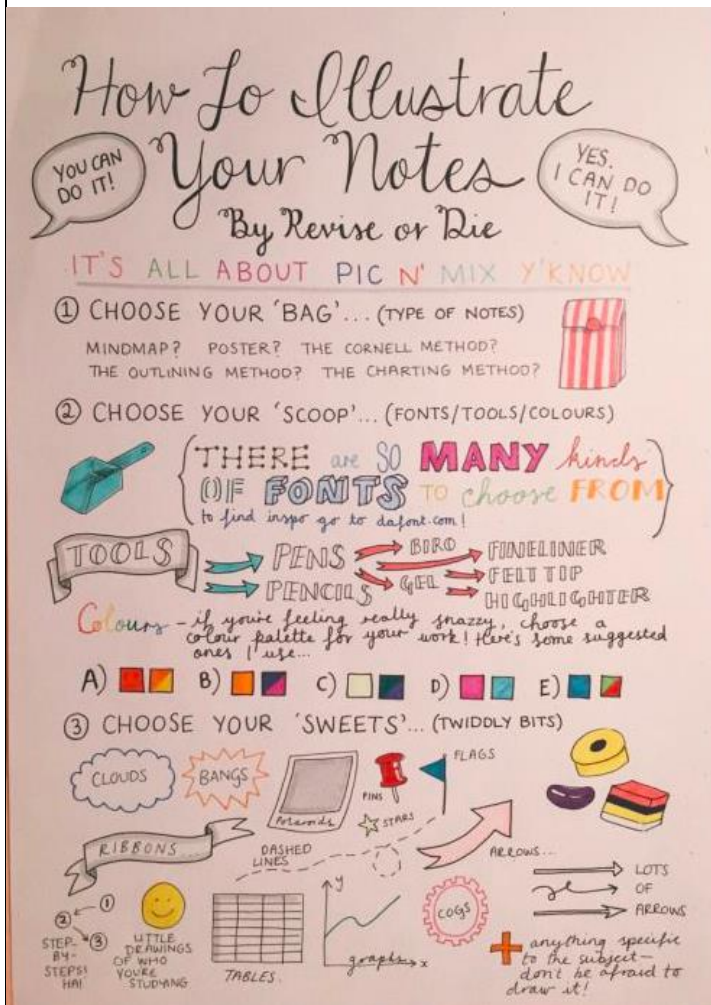 How To Illustrate
Your Notes
YOU CAN
DO IT!
YES.
I CAN DO
IT!
By Revise or Die
IT'S ALL ABOUT PIC N' MIX Y'KNOW
① CHOOSE YOUR 'BAG'... (TYPE OF NOTES)
MINDMAP? POSTER? THE CORNELL METHOD?
THE OUTLINING METHOD? THE CHARTING METHOD?
② CHOOSE YOUR 'SCOOP'... (FONTS/TOOLS/COLOURS)
THERE are SO MANY kinds
OF FONTS TO choose FROM
to find inspo go to dafont.com!
TOOLS
PENS
BIRO
FINELINER
PENCILS
GEL
FELT TIP
HIGHLIGHTER
Colours - if you're feeling really snazzy, choose a
colour palette for your work! Here's some suggested
ones I use...
A) B) C) D) E)
③ CHOOSE YOUR 'SWEETS'... (TWIDDLY BITS)
CLOUDS
BANGS
Polaroids
PINS
FLAGS
STARS
RIBBONS...
DASHED
LINES
ARROWS...
LOTS
OF
ARROWS
①
②
③
STEP-
BY-
STEPS!
HA!
LITTLE
DRAWINGS
OF WHO
YOU'RE
STUDYING
TABLES.
y
graphs
x
COGS
+ anything specific
to the subject-
don't be afraid to
draw it!